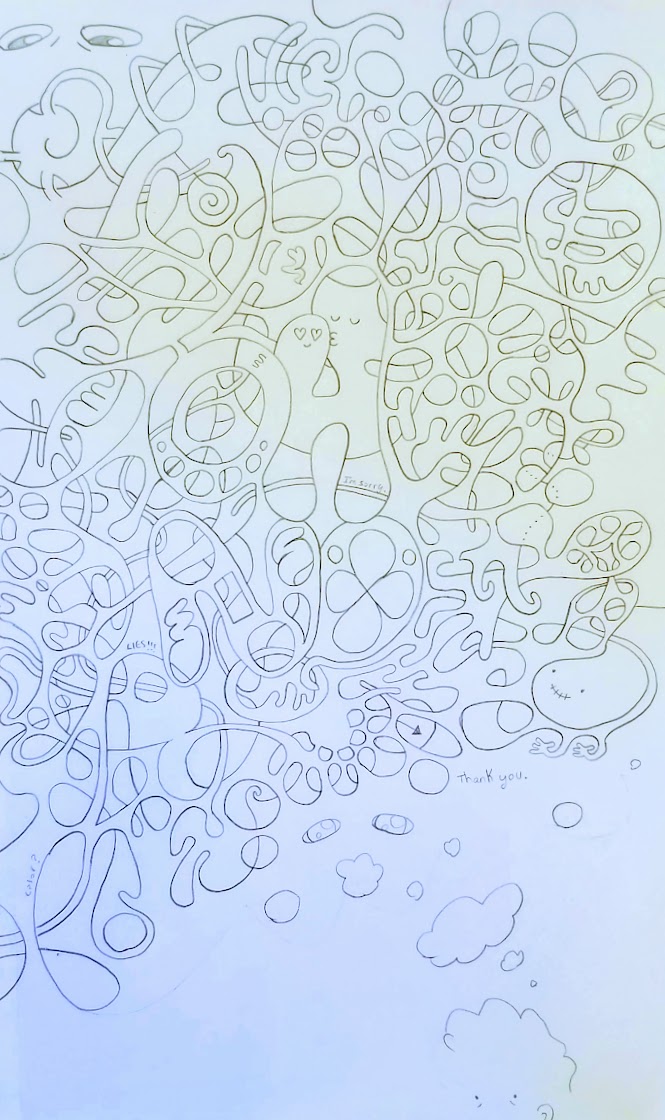 I'm sorry.
LIES!!!
Thank you.
color?
?